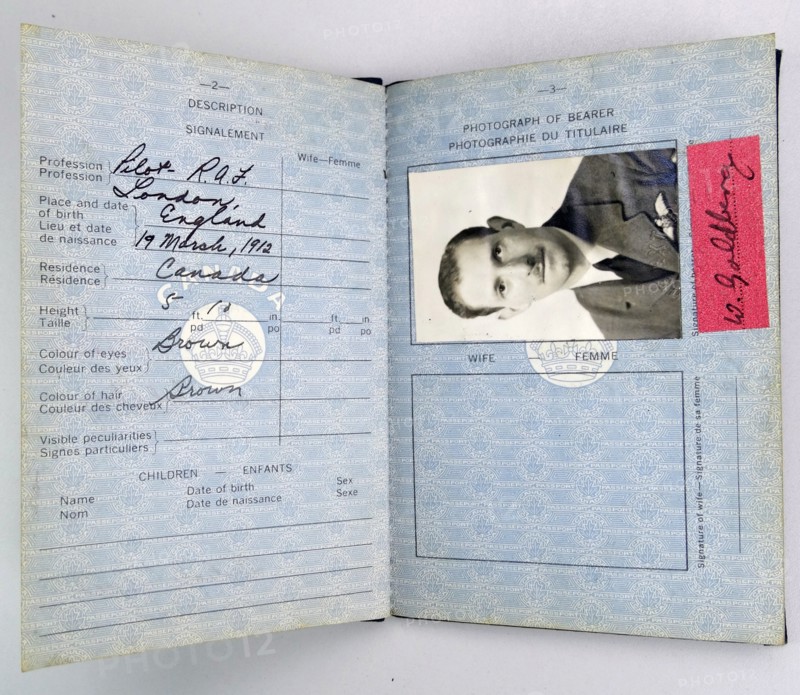 —2—
DESCRIPTION
SIGNALEMENT
Wife—Femme
Profession
Profession
Pilot - R.A.F.
Place and date
of birth
Lieu et date
de naissance
London,
England
19 March, 1912
Residence
Résidence
Canada
CANADA
Height
Taille
5 ft. 10 in.
pd po
ft. in
pd po
Colour of eyes
Couleur des yeux
Brown
Colour of hair
Couleur des cheveux
Brown
Visible peculiarities
Signes particuliers
CHILDREN — ENFANTS
Name
Nom
Date of birth
Date de naissance
Sex
Sexe
—3—
PHOTOGRAPH OF BEARER
PHOTOGRAPHIE DU TITULAIRE
W. Goldberg
WIFE FEMME
Signature of wife—Signature de sa femme
PHOTO12